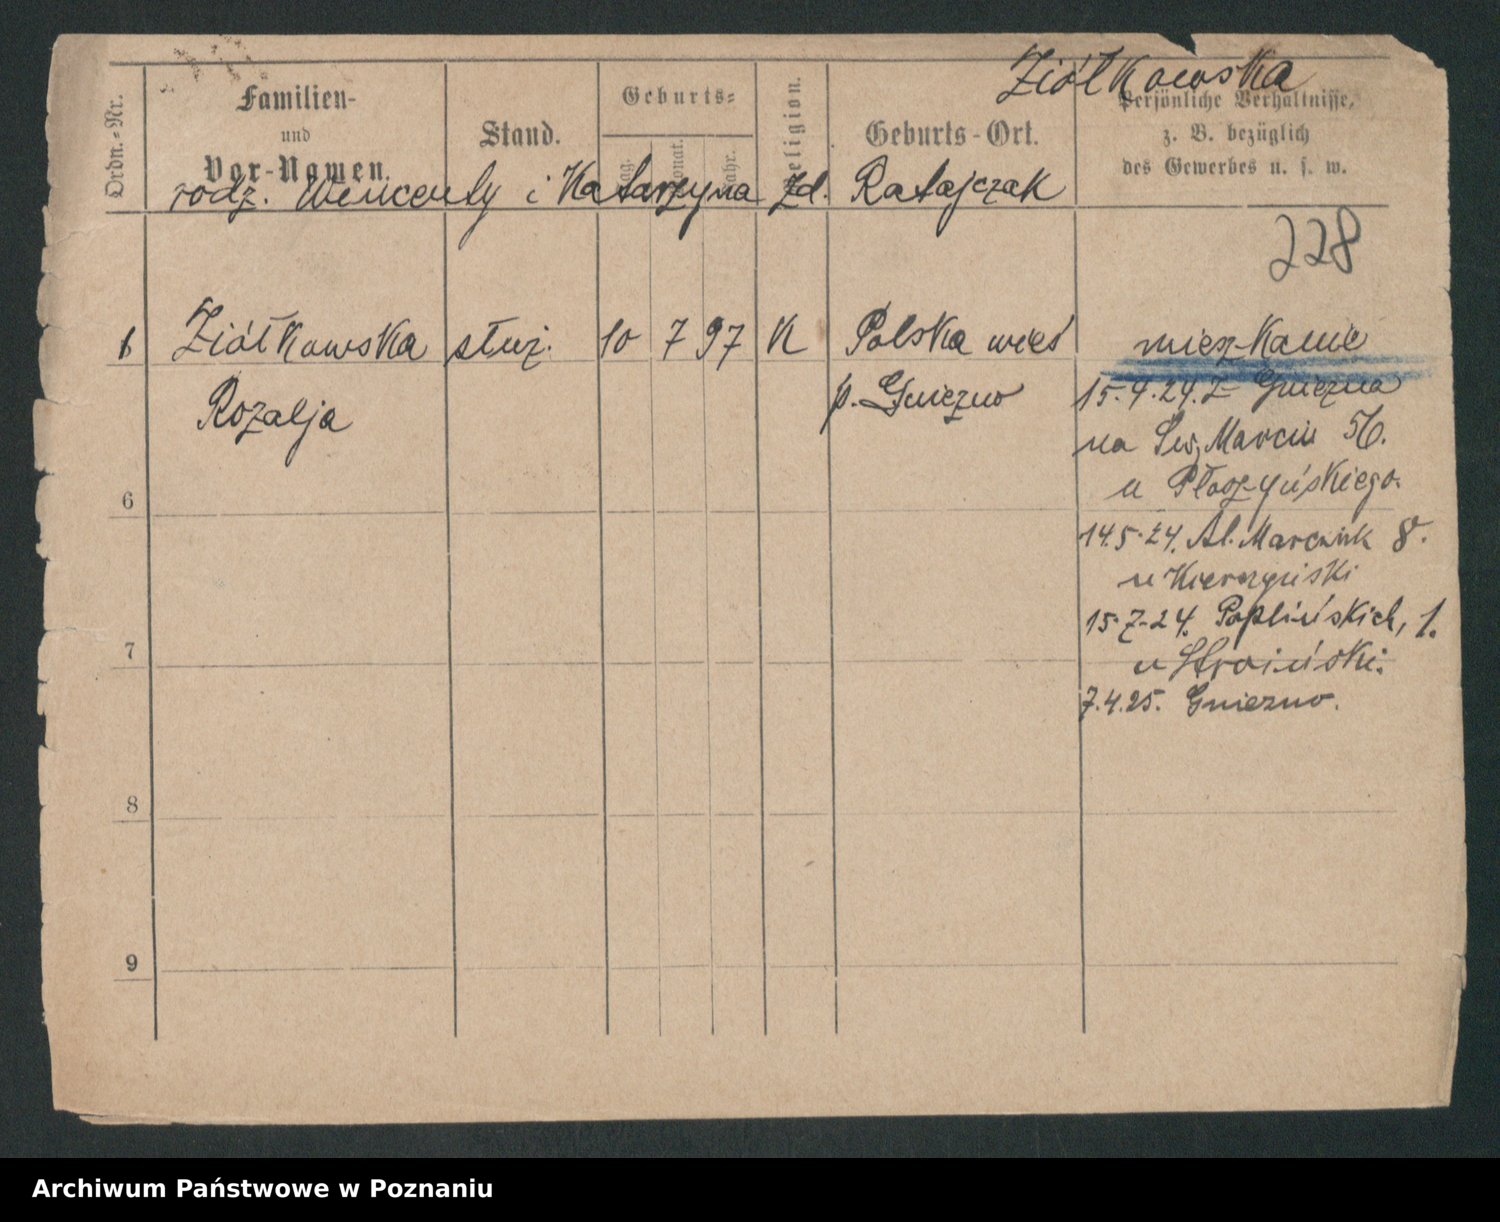 Ziółkowska
Ordn.-Nr.
Familien-
und
Vor-Namen.
Stand.
Geburts-
Tag.
Monat.
Jahr.
Religion.
Geburts-Ort.
Persönliche Verhältnisse,
z. B. bezüglich
des Gewerbes u. s. w.
rodz. Wincenty i Katarzyna zd. Ratajczak
228
1 Ziółkowska służ. 10 7 97 K Polska wieś mieszkanie
Rozalja p. Gniezno 15.4.24. z Gniezna
na Św. Marcin 56.
u Płoszyńskiego.
6
14.5.24. Al. Marcink 8.
u
15.7.24. Poplińskich, 1.
u Stroiński.
7
7.4.25. Gniezno.
8
9
Archiwum Państwowe w Poznaniu